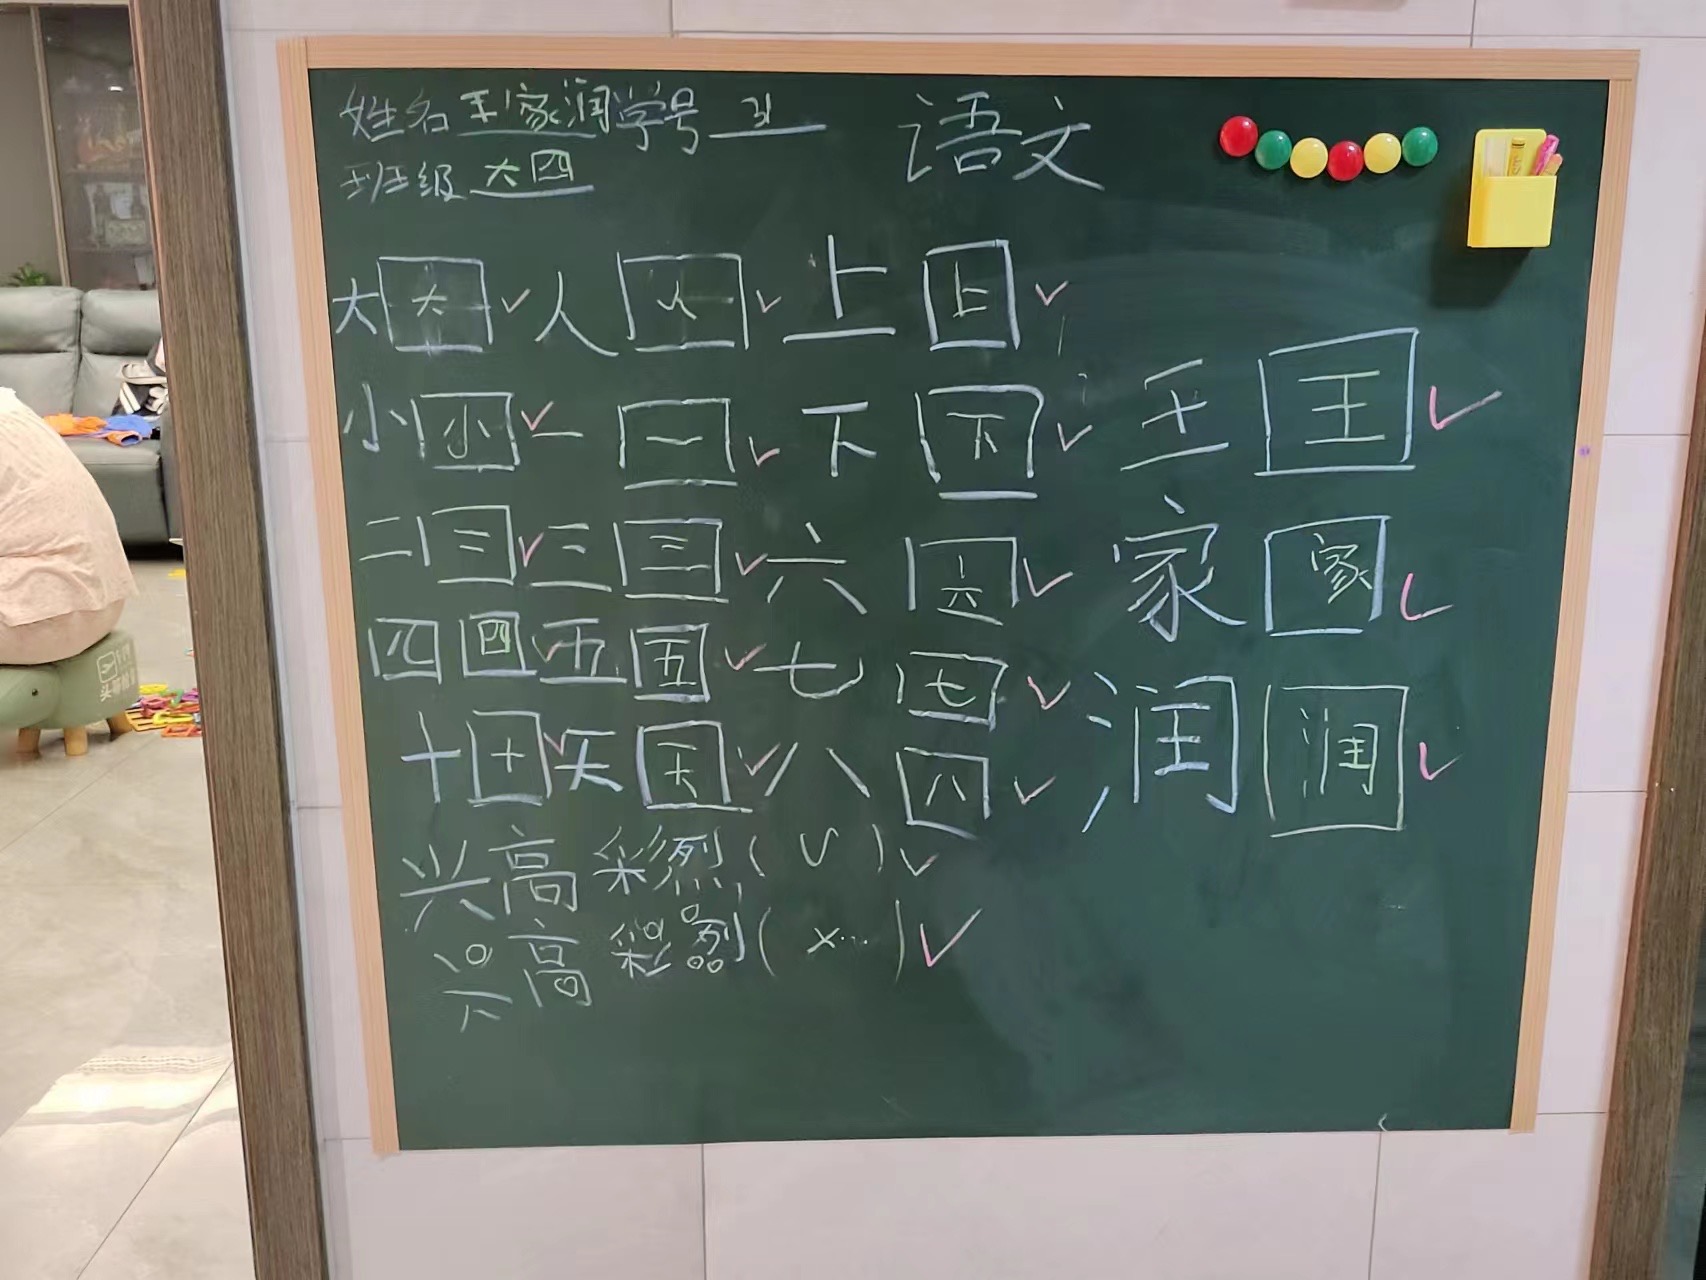 姓名 王家润 学号 31 语文
班级 大四
大 大 ✓ 人 人 ✓ 上 上 ✓
小 小 ✓ 一 一 ✓ 下 下 ✓ 王 王 ✓
二 二 ✓ 三 三 ✓ 六 六 ✓ 家 家 ✓
四 四 ✓ 五 五 ✓ 七 七 ✓ 润 润 ✓
十 十 ✓ 天 天 ✓ 八 八 ✓
兴高彩烈(✓)✓
兴高彩烈(×)✓